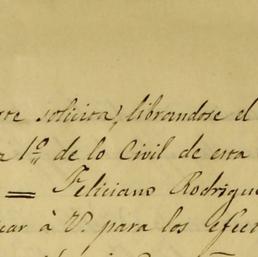 solicita, librandose el
1º de lo Civil de esta
= Feliciano Rodrigue
car à V. para los efec